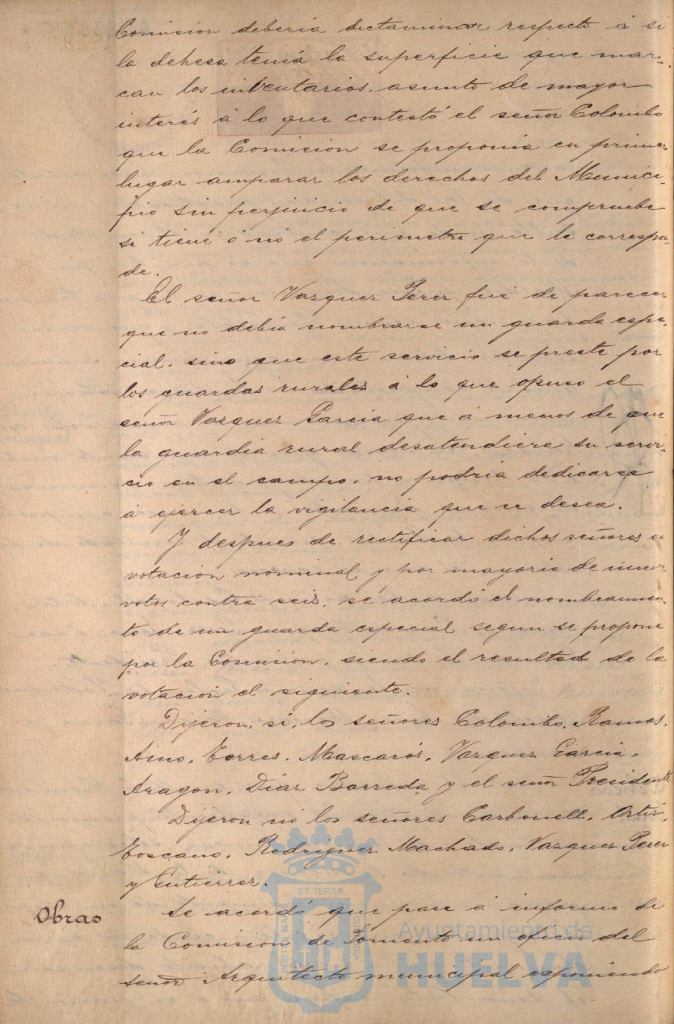 Comision deberia dictaminar respecto á si
la dehesa tenia la superficie que mar-
can los inventarios, asunto de mayor
interés á lo que contestó el señor Colombo
que la Comision se proponia en primer
lugar amparar los derechos del Munici-
pio sin perjuicio de que se compruebe
si tiene ó nó el perimetro que le correspon-
de.
El señor Vazquez Perez fué de parecer
que no debia nombrarse un guarda espe-
cial, sino que este servicio se preste por
los guardas rurales á lo que opuso el
señor Vazquez Garcia que á menos de que
la guardia rural desatendiera su servi-
cio en el campo, no podria dedicarse
á ejercer la vigilancia que se desea.
Y despues de rectificar dichos señores en
votacion nominal y por mayoria de nueve
votos contra seis, se acordó el nombramien-
to de un guarda especial segun se propone
por la Comision, siendo el resultado de la
votacion el siguiente.
Dijeron, si, los señores Colombo, Ramos,
Torres, Mascarós, Vazquez Garcia,
Aragon, Diaz Barreda y el señor Presidente
Dijeron nó los señores Carbonell, Ortiz,
Toscano, Rodriguez Machado, Vazquez Perez
y Gutierrez.
Obras
Se acordó que pase á informe de
la Comision de Fomento un oficio del
señor Arquitecto municipal esponiendo
ET TERRÆ
Ayuntamiento de
HUELVA